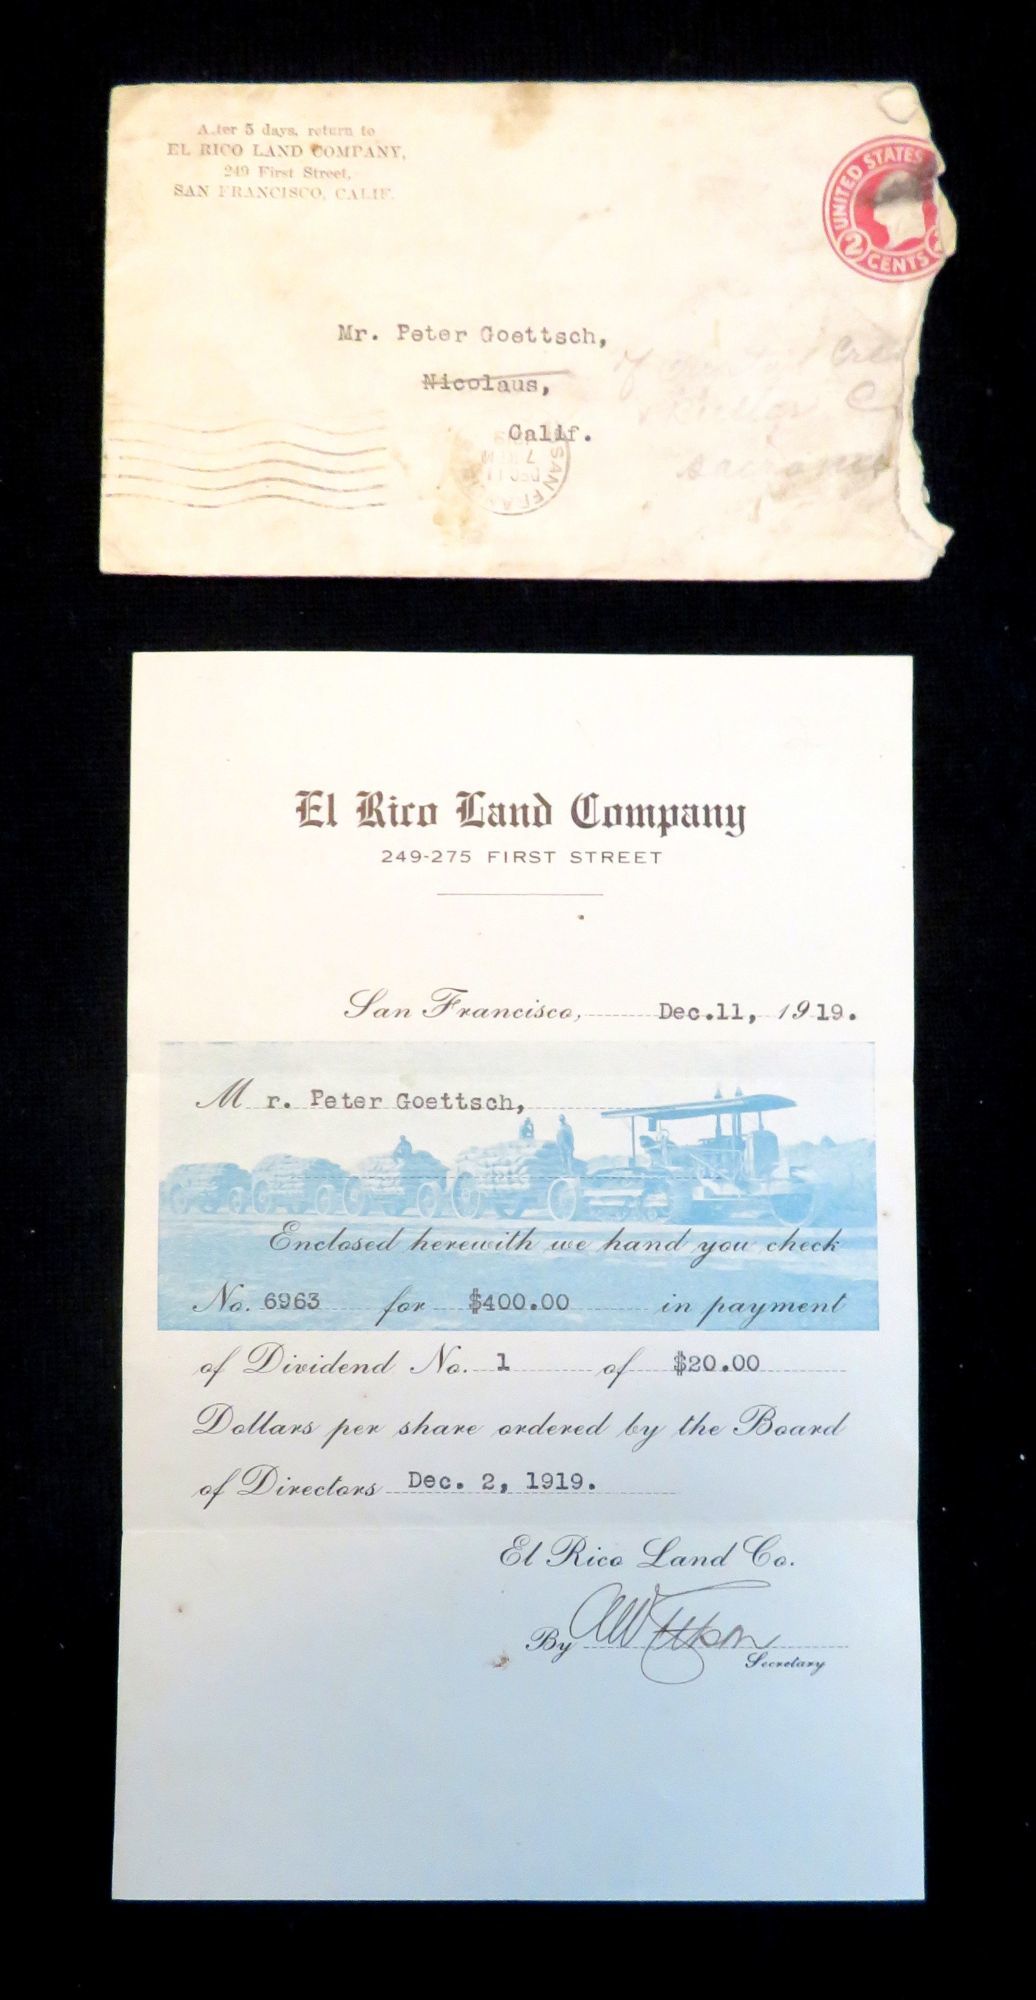 After 5 days, return to
EL RICO LAND COMPANY,
249 First Street,
SAN FRANCISCO, CALIF.
UNITED STATES
2 CENTS
Mr. Peter Goettsch,
Nicolaus,
Calif.
SAN FRAN
DEC 11
7
El Rico Land Company
249-275 FIRST STREET
San Francisco, Dec.11, 1919.
Mr. Peter Goettsch,
Enclosed herewith we hand you check
No. 6963 for $400.00 in payment
of Dividend No. 1 of $20.00
Dollars per share ordered by the Board
of Directors Dec. 2, 1919.
El Rico Land Co.
By
Secretary